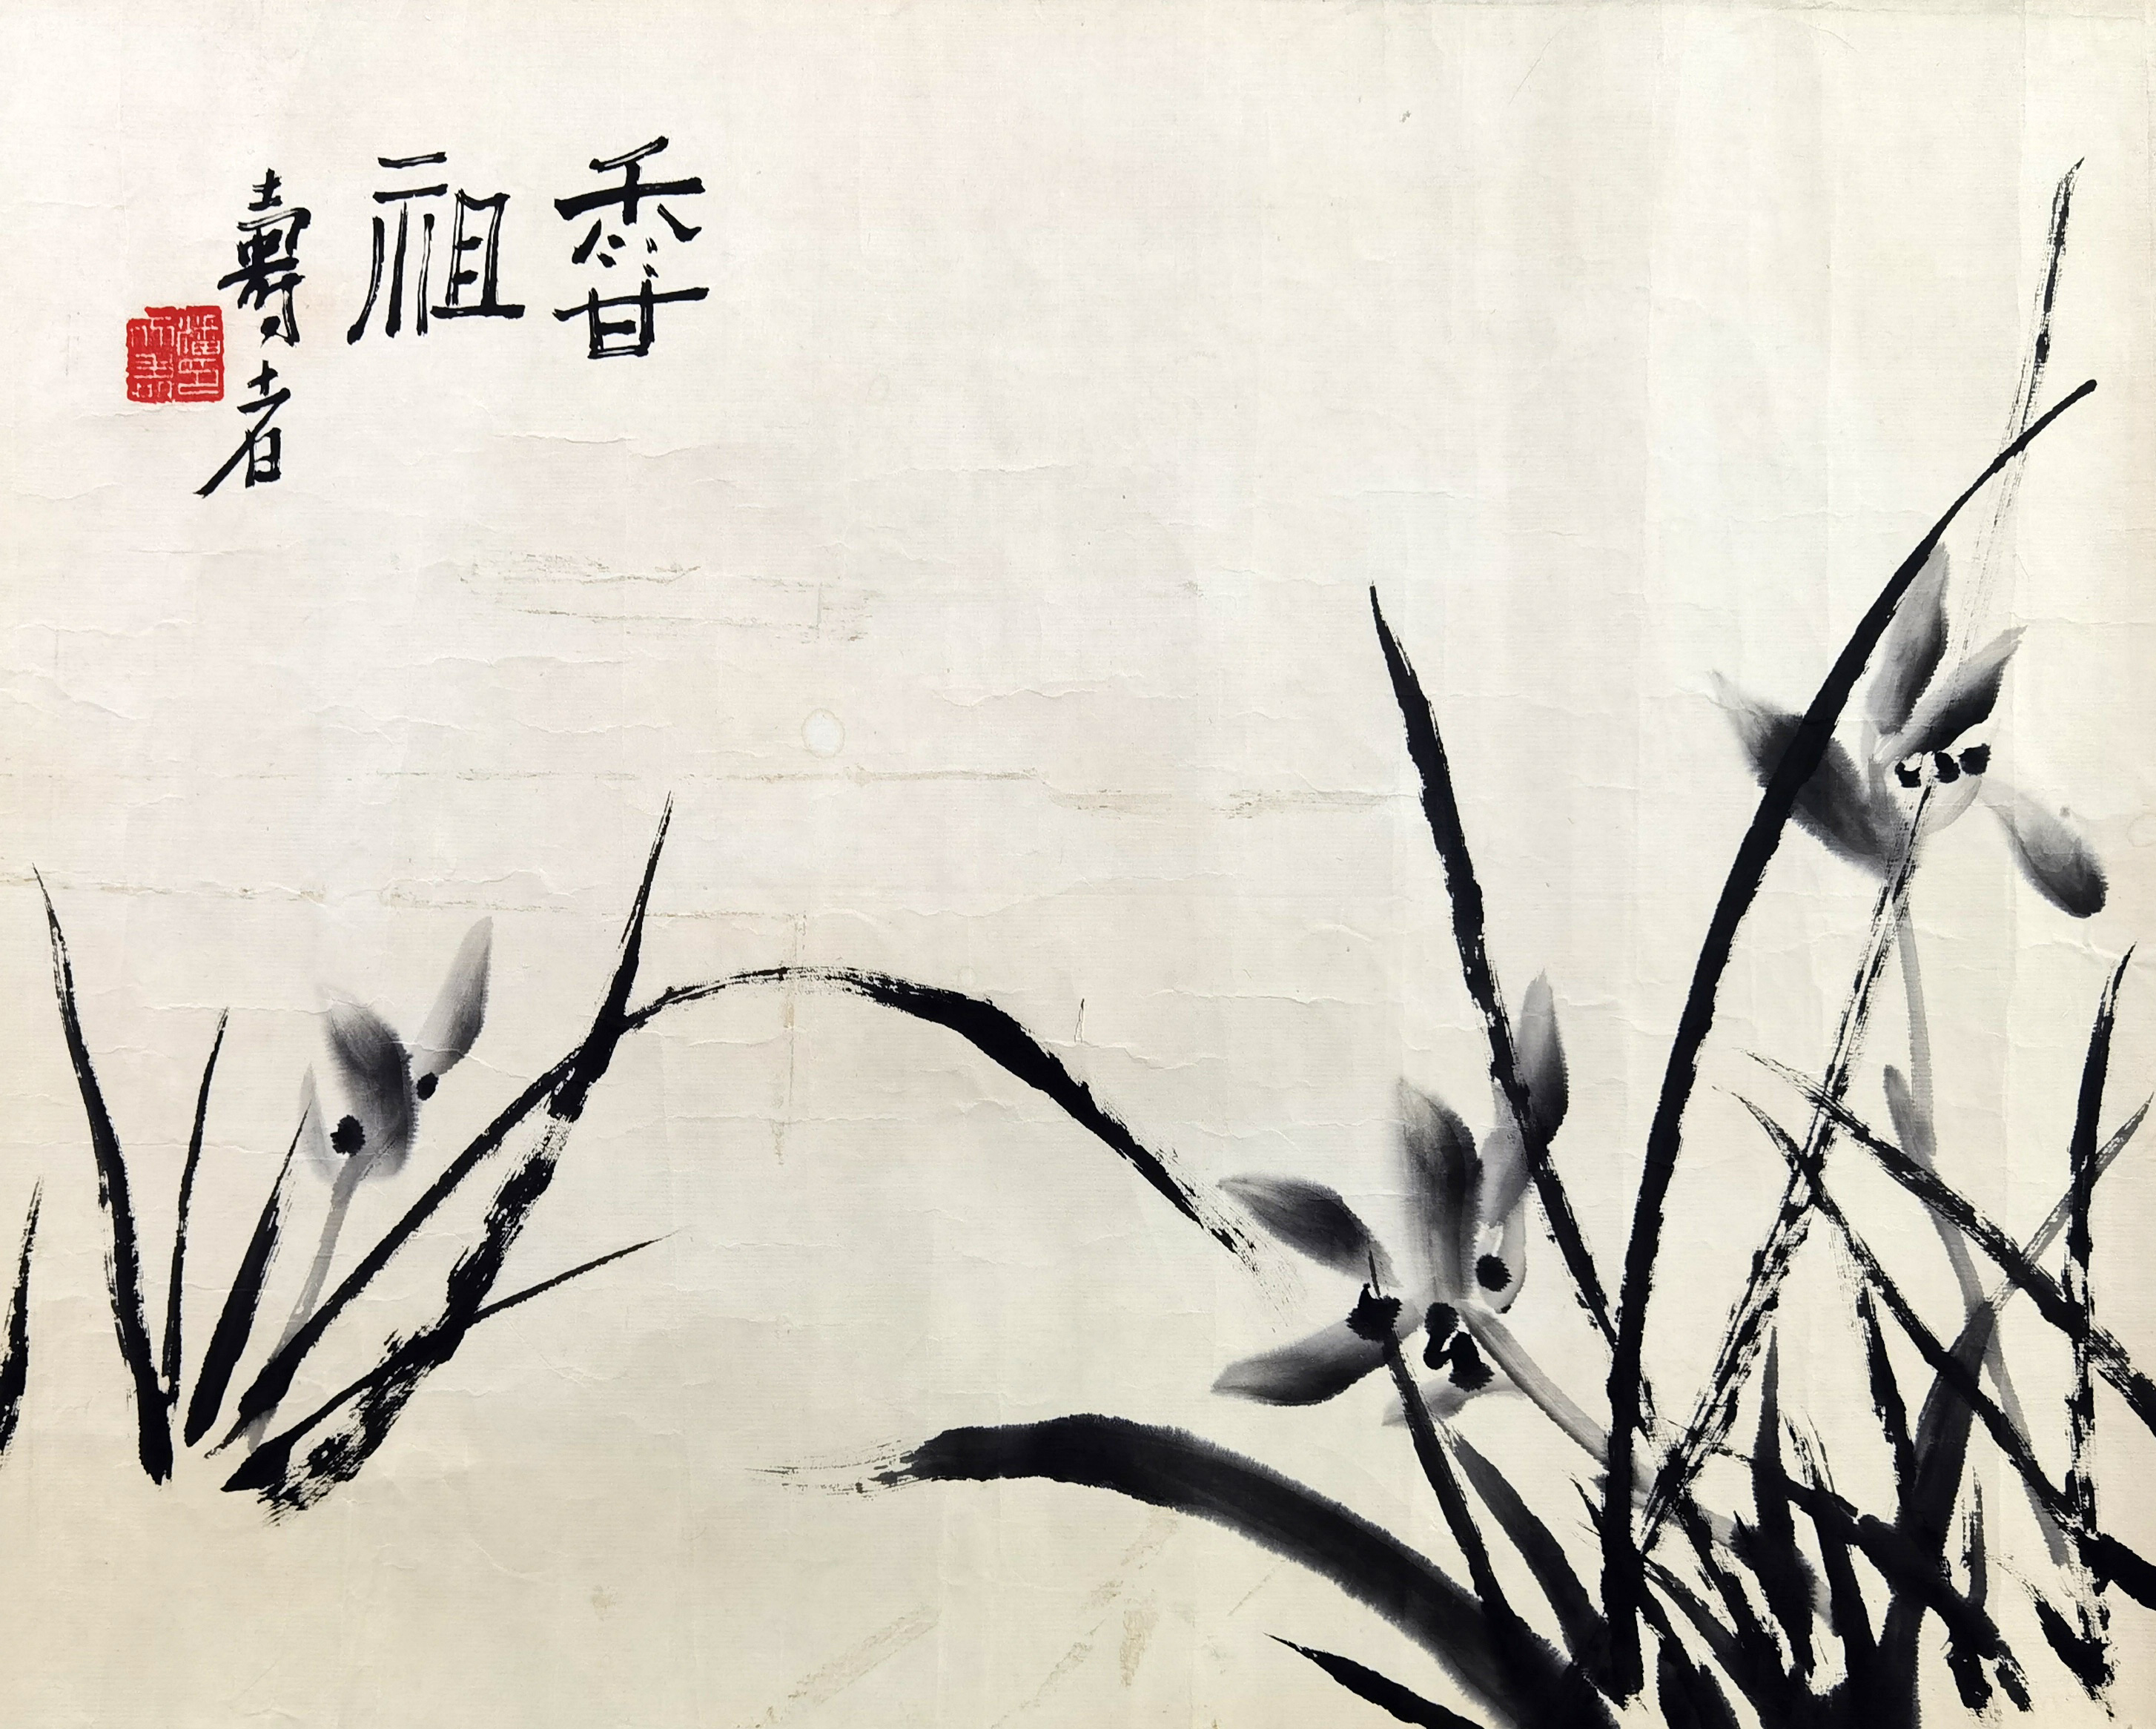 香
祖
壽者
潘天壽印